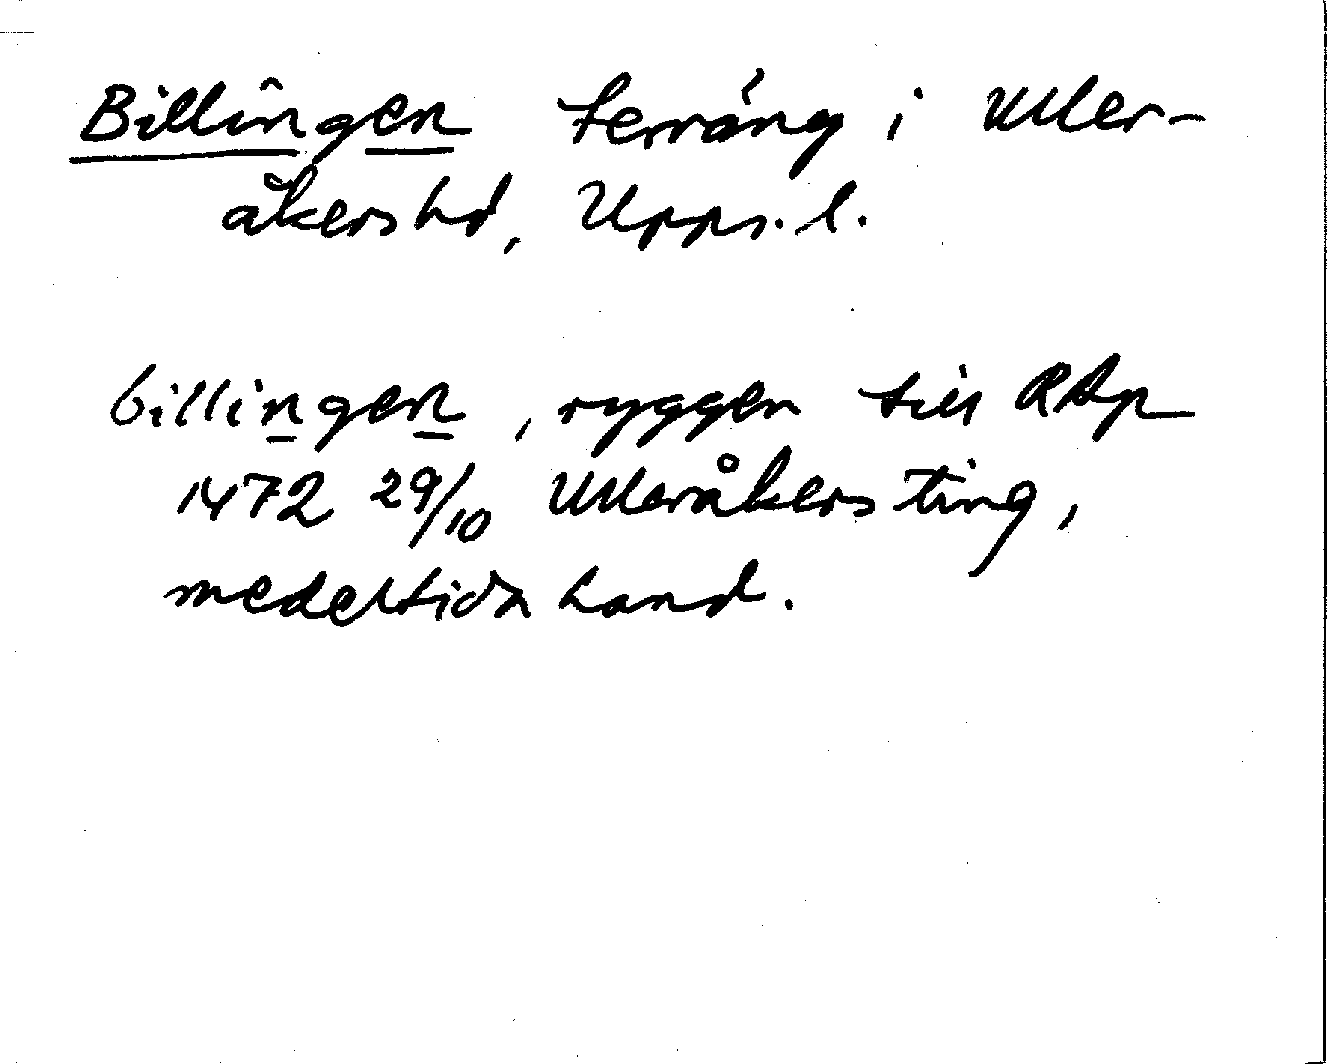 Billingen terräng i Uller-
åkers hd, Upps. l.
billingen, ryggen till RAp
1472 29/10 Ulleråkers ting,
medeltida hand.